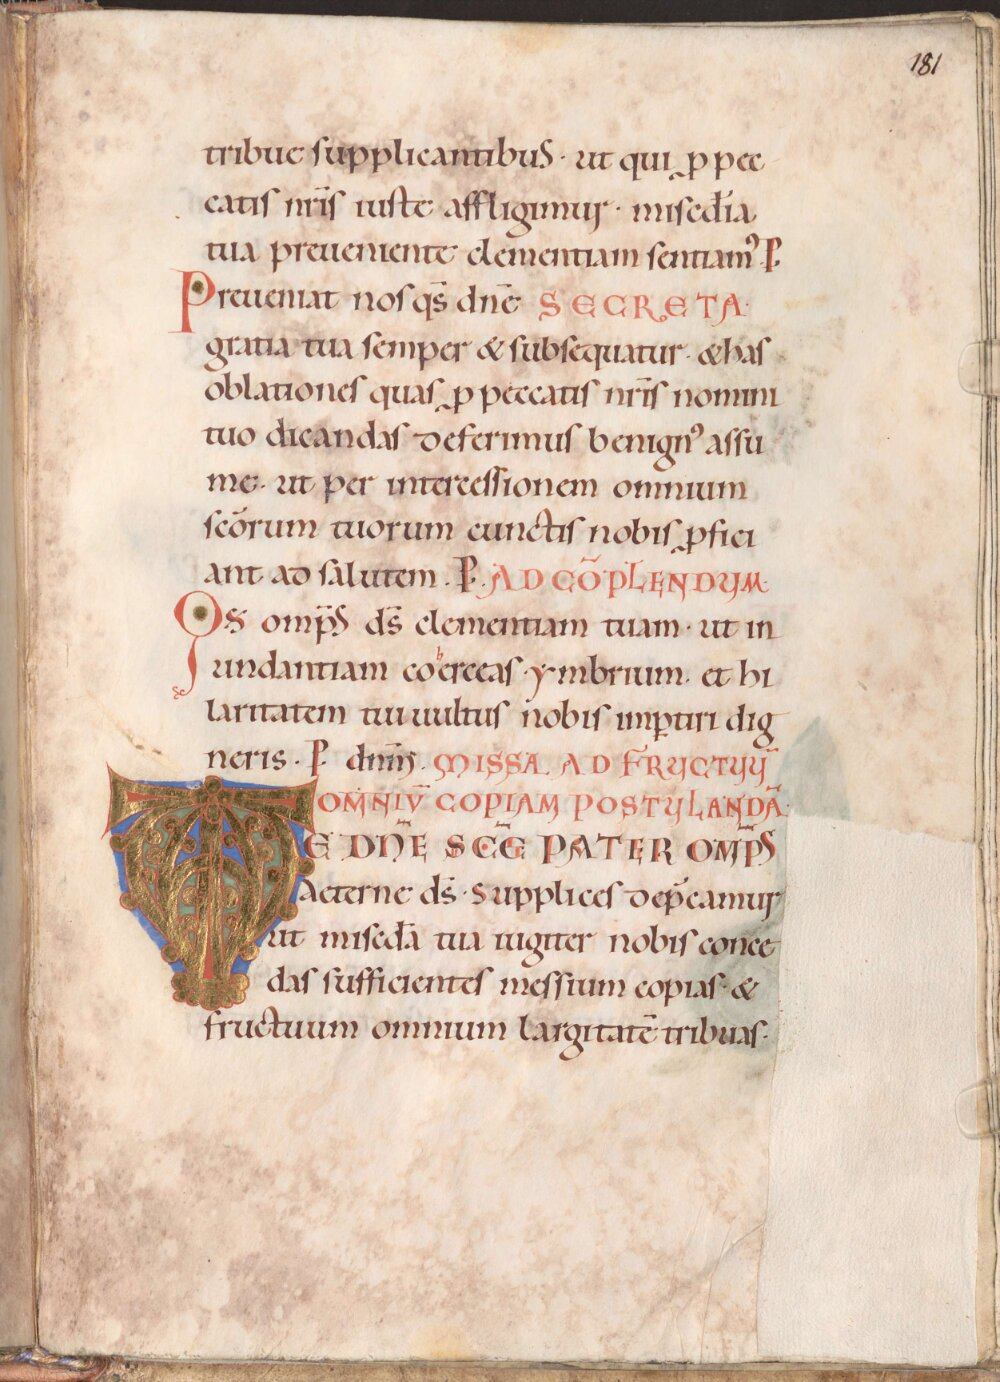 181
tribue supplicantibus · ut qui ꝓ pec
catis nr̄is iuste affligimur · misedīa
tua preueniente clementiam sentiamꝰ · P.
Preueniat nos qs̄ dn̄e SECRETA·
gratia tua semper & subsequatur · & has
oblationes quas ꝓ peccatis nr̄is nomini
tuo dicandas deferimus benignꝰ assu
me · ut per intercessionem omnium
scōrum tuorum cunctis nobis ꝓfici
ant ad salutem · P. AD CŌPLENDVM·
Os omp̄s ds̄ clementiam tuam · ut in
undantiam coherceas ymbrium · et hi
laritatem tui uultus nobis imꝑtiri dig
neris · P dn̄m̄ · MISSA AD FRVCTVV̄
OMNIV̄ COPIAM POSTVLANDĀ·
TE DN̄E SC̄E PATER OMP̄S
Aeterne ds̄ · supplices dep̄camur
ut misedā tua iugiter nobis conce
das sufficientes messium copias · &
fructuum omnium largitatē tribuas·